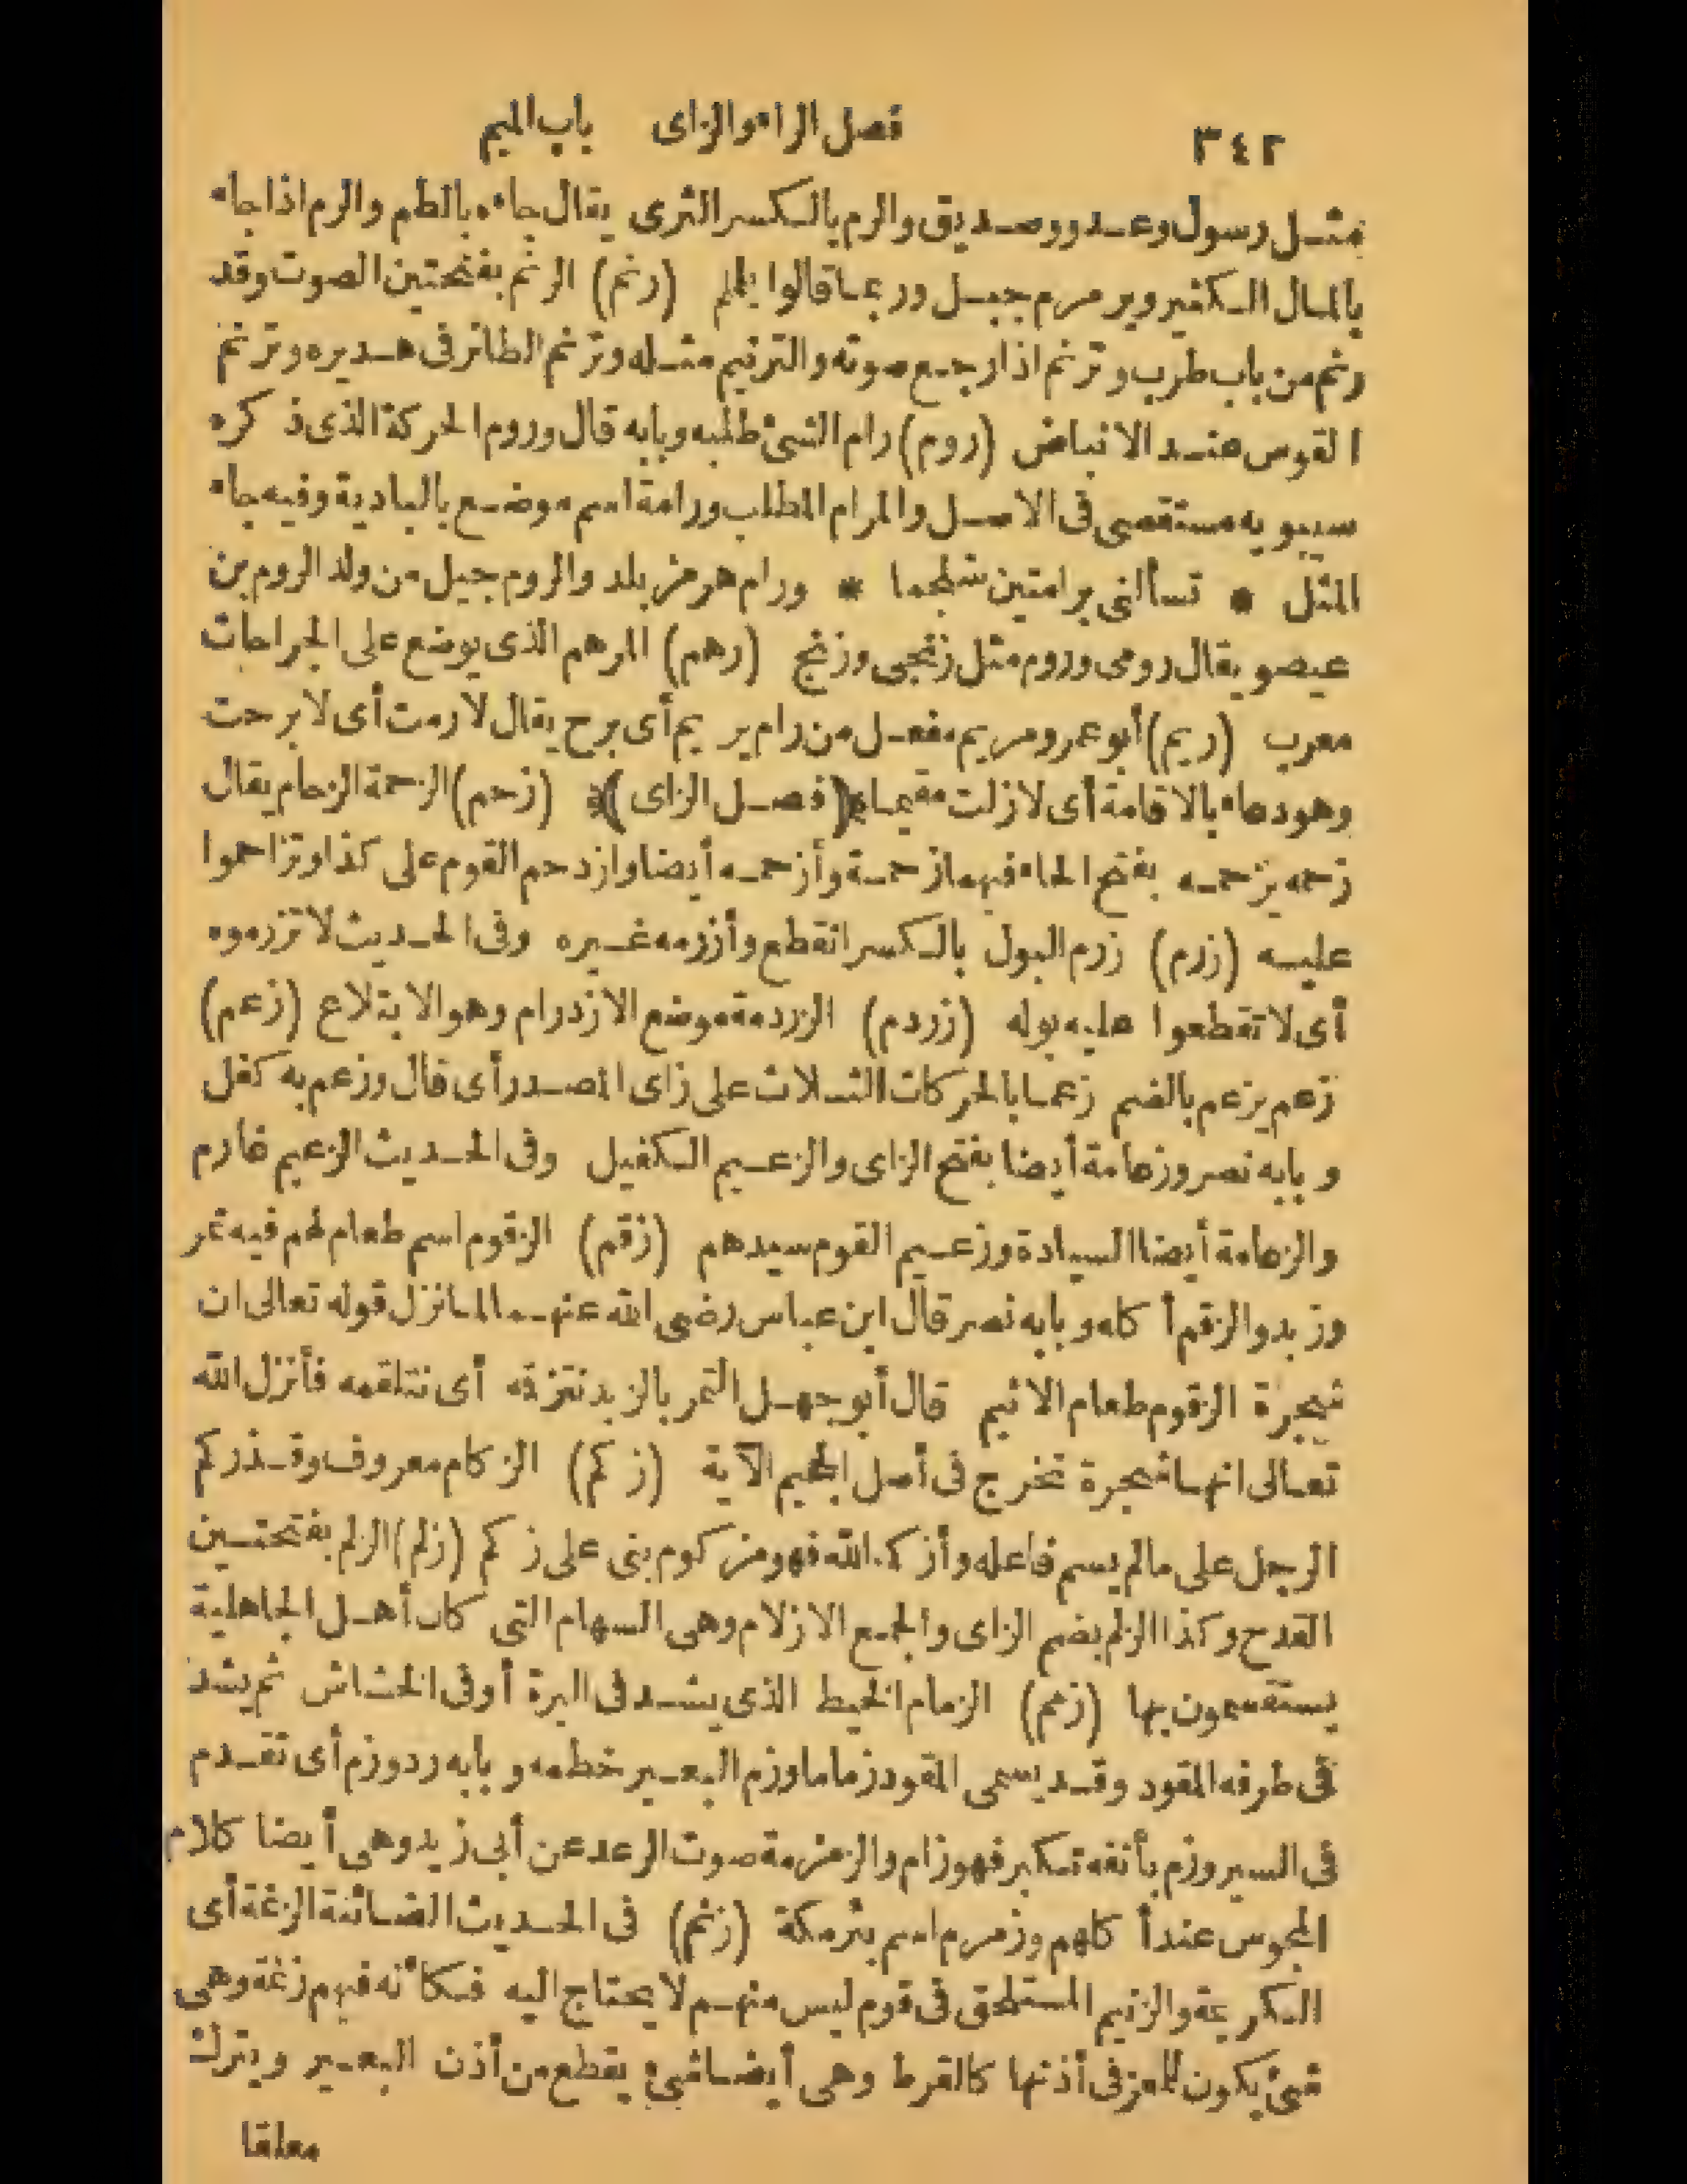 ٣٤٢ فصل الراء والزاى باب الميم
مثل رسول وعدو وصديق والرم بالكسر الثرى يقال جاءه بالطم والرم اذا جاء
بالمال الكثير ويرمرم جبل وربما قالوا يلملم (رنم) الرنم بفتحتين الصوت وقد
رنم من باب طرب وترنم اذا رجع صوته والترنيم مثله وترنم الطائر فى هديره وترنم
القوس عند الانباض (روم) رام الشئ طلبه وبابه قال وروم الحركة الذى ذكره
سيبويه مستقصى فى الاصل والمرام المطلب ورامة اسم موضع بالبادية وفيه جاء
المثل * تسألنى برامتين شلجما * ورام هرمز بلد والروم جيل من ولد الروم بن
عيصو يقال رومى وروم مثل زنجى وزنج (رهم) المرهم الذى يوضع على الجراحات
معرب (ريم) أبو عمرو مريم مفعل من رام يريم أى برح يقال لا رمت أى لا برحت
وهو دعاء بالاقامة أى لا زلت مقيما *(فصل الزاى)* (زحم) الزحمة الزحام يقال
زحمه يزحمه بفتح الحاء فيهما زحمة وأزحمه أيضا وازدحم القوم على كذا وتزاحموا
عليه (زرم) زرم البول بالكسر انقطع وأزرمه غيره وفى الحديث لا تزرموه
أى لا تقطعوا عليه بوله (زردم) الزردمة موضع الازدرام وهو الابتلاع (زعم)
زعم يزعم بالضم زعما بالحركات الثلاث على زاى المصدر أى قال وزعم به كفل
وبابه نصر وزعامة أيضا بفتح الزاى والزعيم الكفيل وفى الحديث الزعيم غارم
والزعامة أيضا السيادة وزعيم القوم سيدهم (زقم) الزقوم اسم طعام لهم فيه تمر
وزبد والزقم أكله وبابه نصر قال ابن عباس رضى الله عنهما لما نزل قوله تعالى ان
شجرة الزقوم طعام الاثيم قال أبو جهل التمر بالزبد نتزقمه أى نتلقمه فأنزل الله
تعالى انها شجرة تخرج فى أصل الجحيم الآية (زكم) الزكام معروف وقد زكم
الرجل على ما لم يسم فاعله وأزكمه الله فهو مزكوم بنى على زكم (زلم) الزلم بفتحتين
القدح وكذا الزلم بضم الزاى والجمع الازلام وهى السهام التى كان أهل الجاهلية
يستقسمون بها (زمم) الزمام الخيط الذى يشد فى البرة أو فى الخشاش ثم يشد
فى طرفه المقود وقد يسمى المقود زماما وزم البعير خطمه وبابه رد وزم أى تقدم
فى السير وزم بأنفه تكبر فهو زام والزمزمة صوت الرعد عن أبى زيد وهى أيضا كلام
المجوس عند أكلهم وزمزم اسم بئر مكة (زنم) فى الحديث الضائنة الزنمة أى
الكريمة والزنيم المستلحق فى قوم ليس منهم لا يحتاج اليه فكأنه فيهم زنمة وهى
شئ يكون للمعز فى أذنها كالقرط وهى أيضا شئ يقطع من أذن البعير ويترك
معلقا